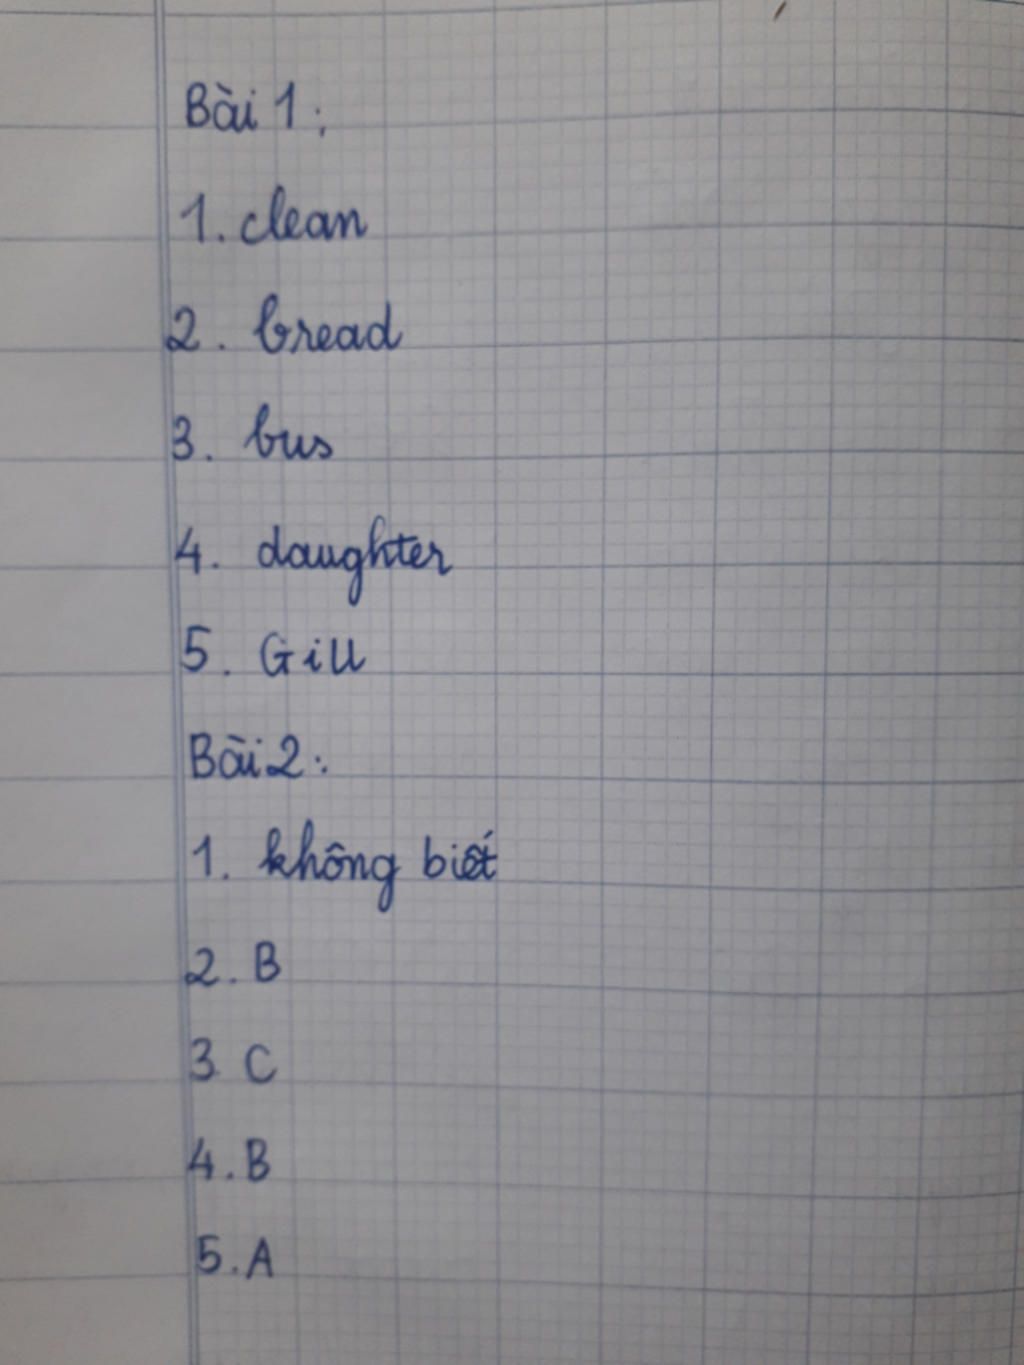 Bài 1:
1. clean
2. bread
3. bus
4. daughter
5. Gill
Bài 2:
1. không biết
2. B
3. C
4. B
5. A